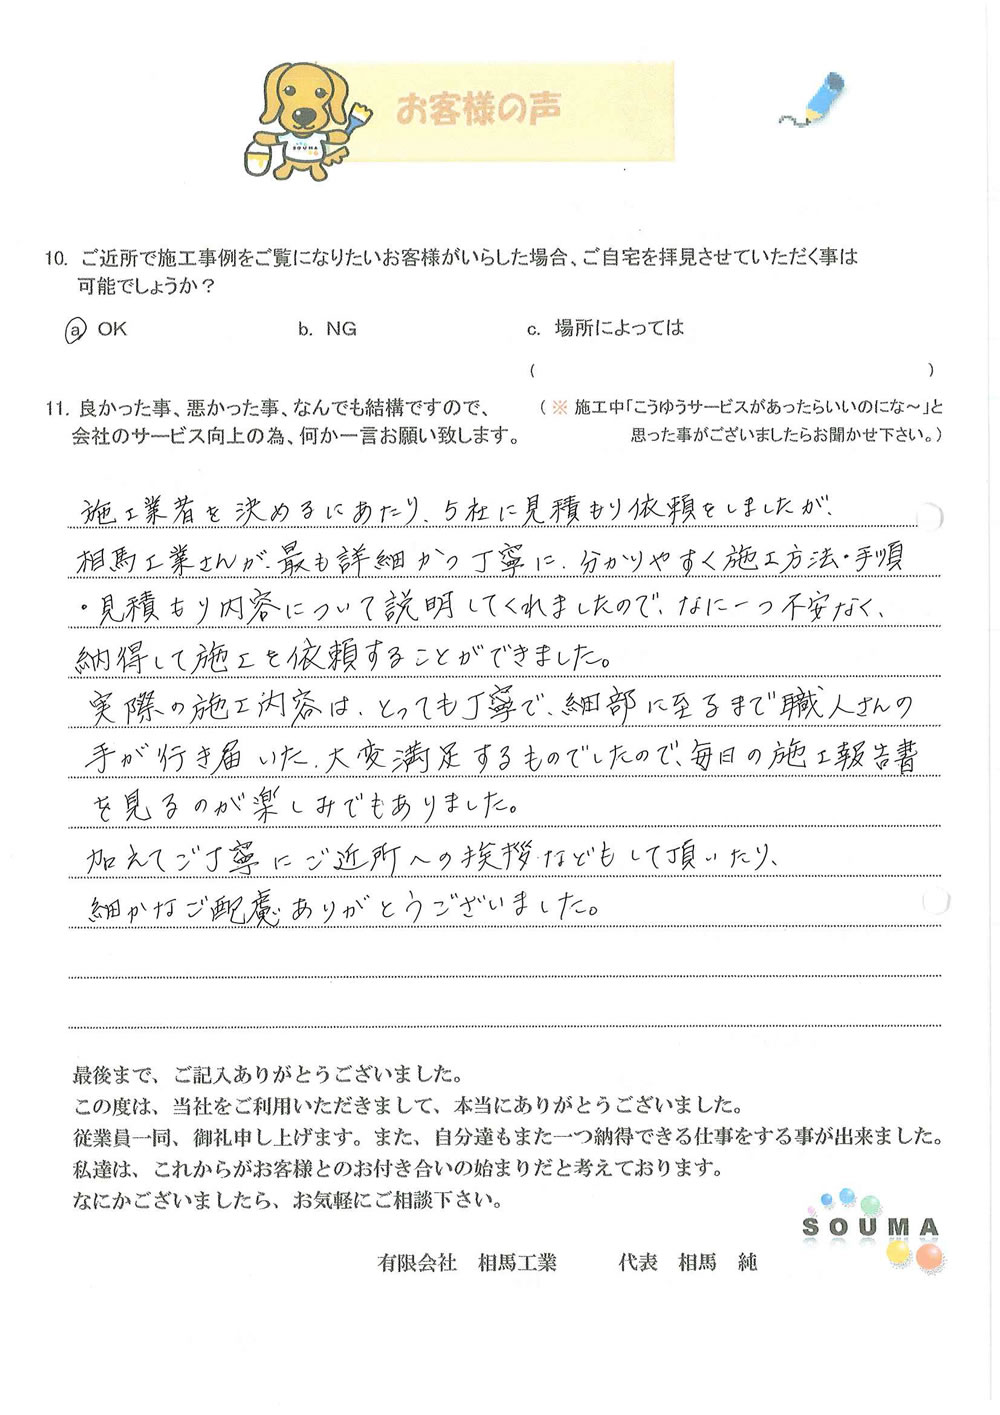 SOUMA
お客様の声
10. ご近所で施工事例をご覧になりたいお客様がいらした場合、ご自宅を拝見させていただく事は
可能でしょうか？
a OK b. NG c. 場所によっては
( )
11. 良かった事、悪かった事、なんでも結構ですので、 （※ 施工中「こうゆうサービスがあったらいいのにな～」と
会社のサービス向上の為、何か一言お願い致します。 思った事がございましたらお聞かせ下さい。）
施工業者を決めるにあたり、5社に見積もり依頼をしましたが、
相馬工業さんが、最も詳細かつ丁寧に、分かりやすく施工方法・手順
・見積もり内容について説明してくれましたので、なに一つ不安なく、
納得して施工を依頼することができました。
実際の施工内容は、とっても丁寧で、細部に至るまで職人さんの
手が行き届いた、大変満足するものでしたので、毎日の施工報告書
を見るのが楽しみでもありました。
加えてご丁寧にご近所への挨拶などもして頂いたり、
細かなご配慮ありがとうございました。
最後まで、ご記入ありがとうございました。
この度は、当社をご利用いただきまして、本当にありがとうございました。
従業員一同、御礼申し上げます。また、自分達もまた一つ納得できる仕事をする事が出来ました。
私達は、これからがお客様とのお付き合いの始まりだと考えております。
なにかございましたら、お気軽にご相談下さい。
SOUMA
有限会社 相馬工業 代表 相馬 純